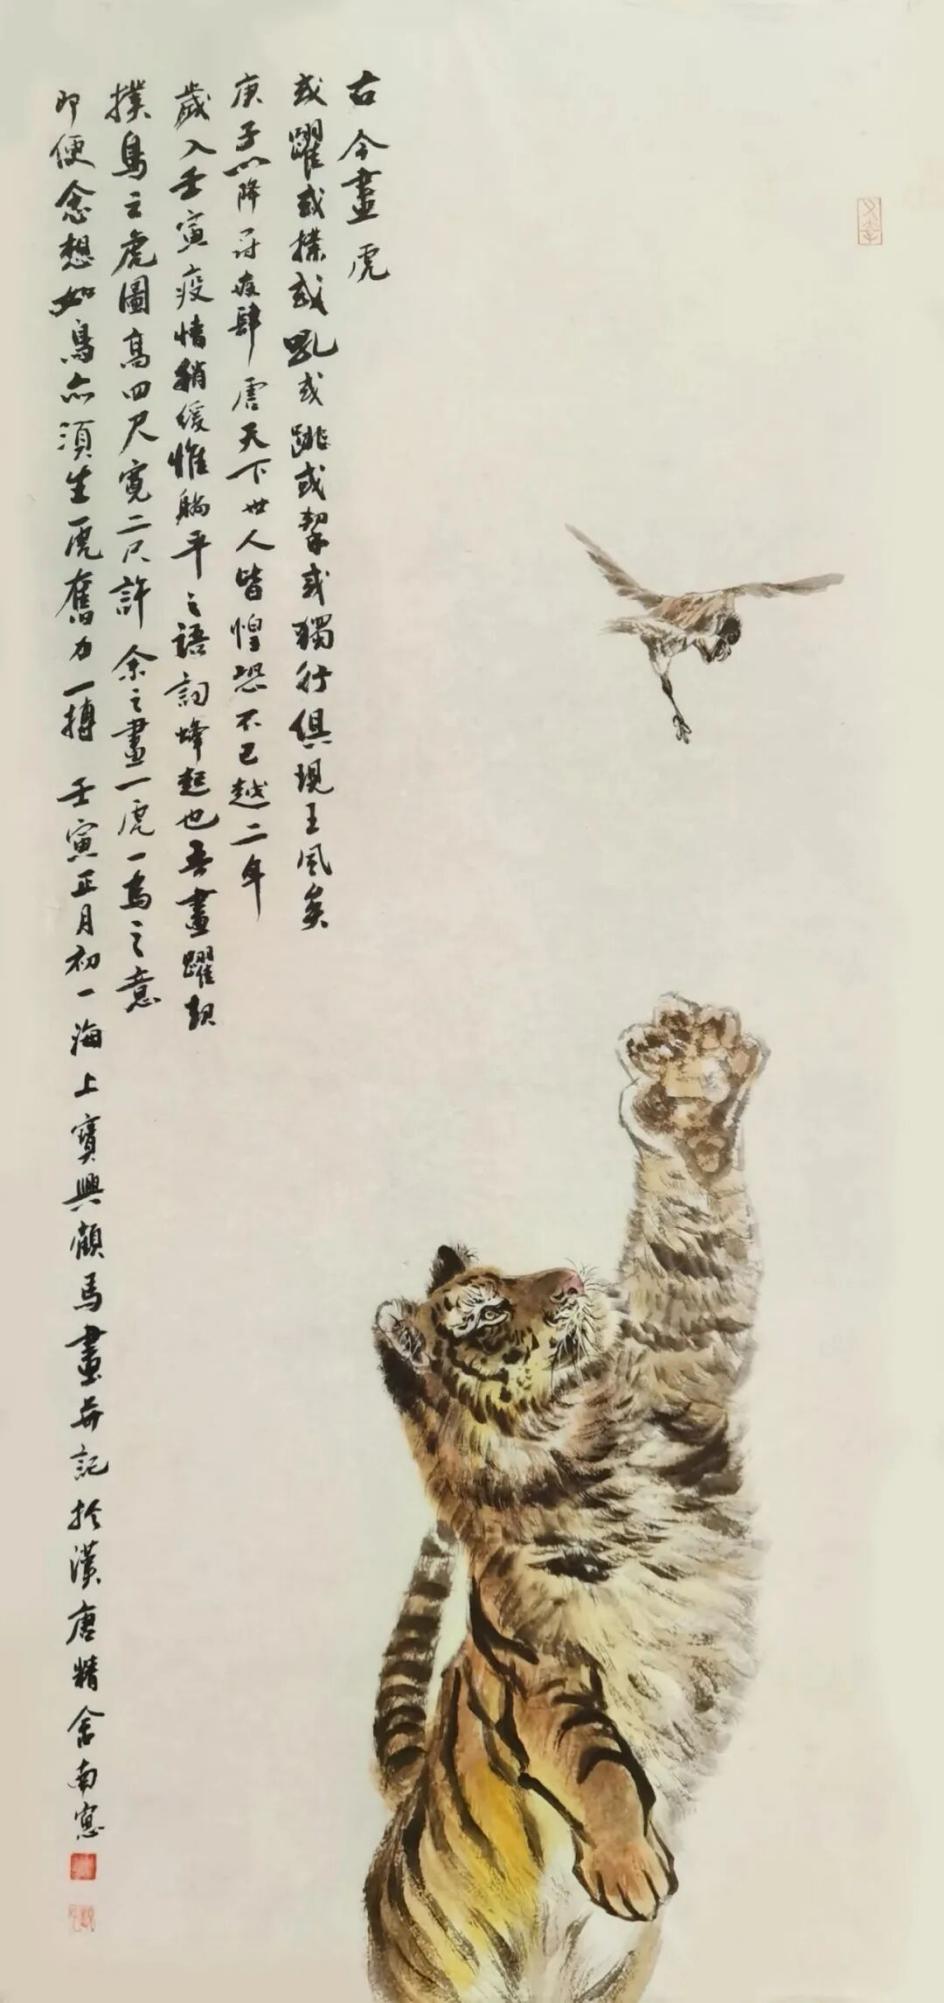 古今畫虎
或躍或撲或吼或跳或挈或獨行俱現王風矣
庚子以降冠疫肆虐天下世人皆惶恐不已越二年
歲入壬寅疫情稍緩惟躺平之語詞蜂起也吾畫躍起
撲鳥之虎圖高四尺寬二尺許余之畫一虎一鳥之意
即便念想如鳥亦須生虎奮力一搏壬寅正月初一海上寶興顧馬畫并記於漢唐精舍南窓